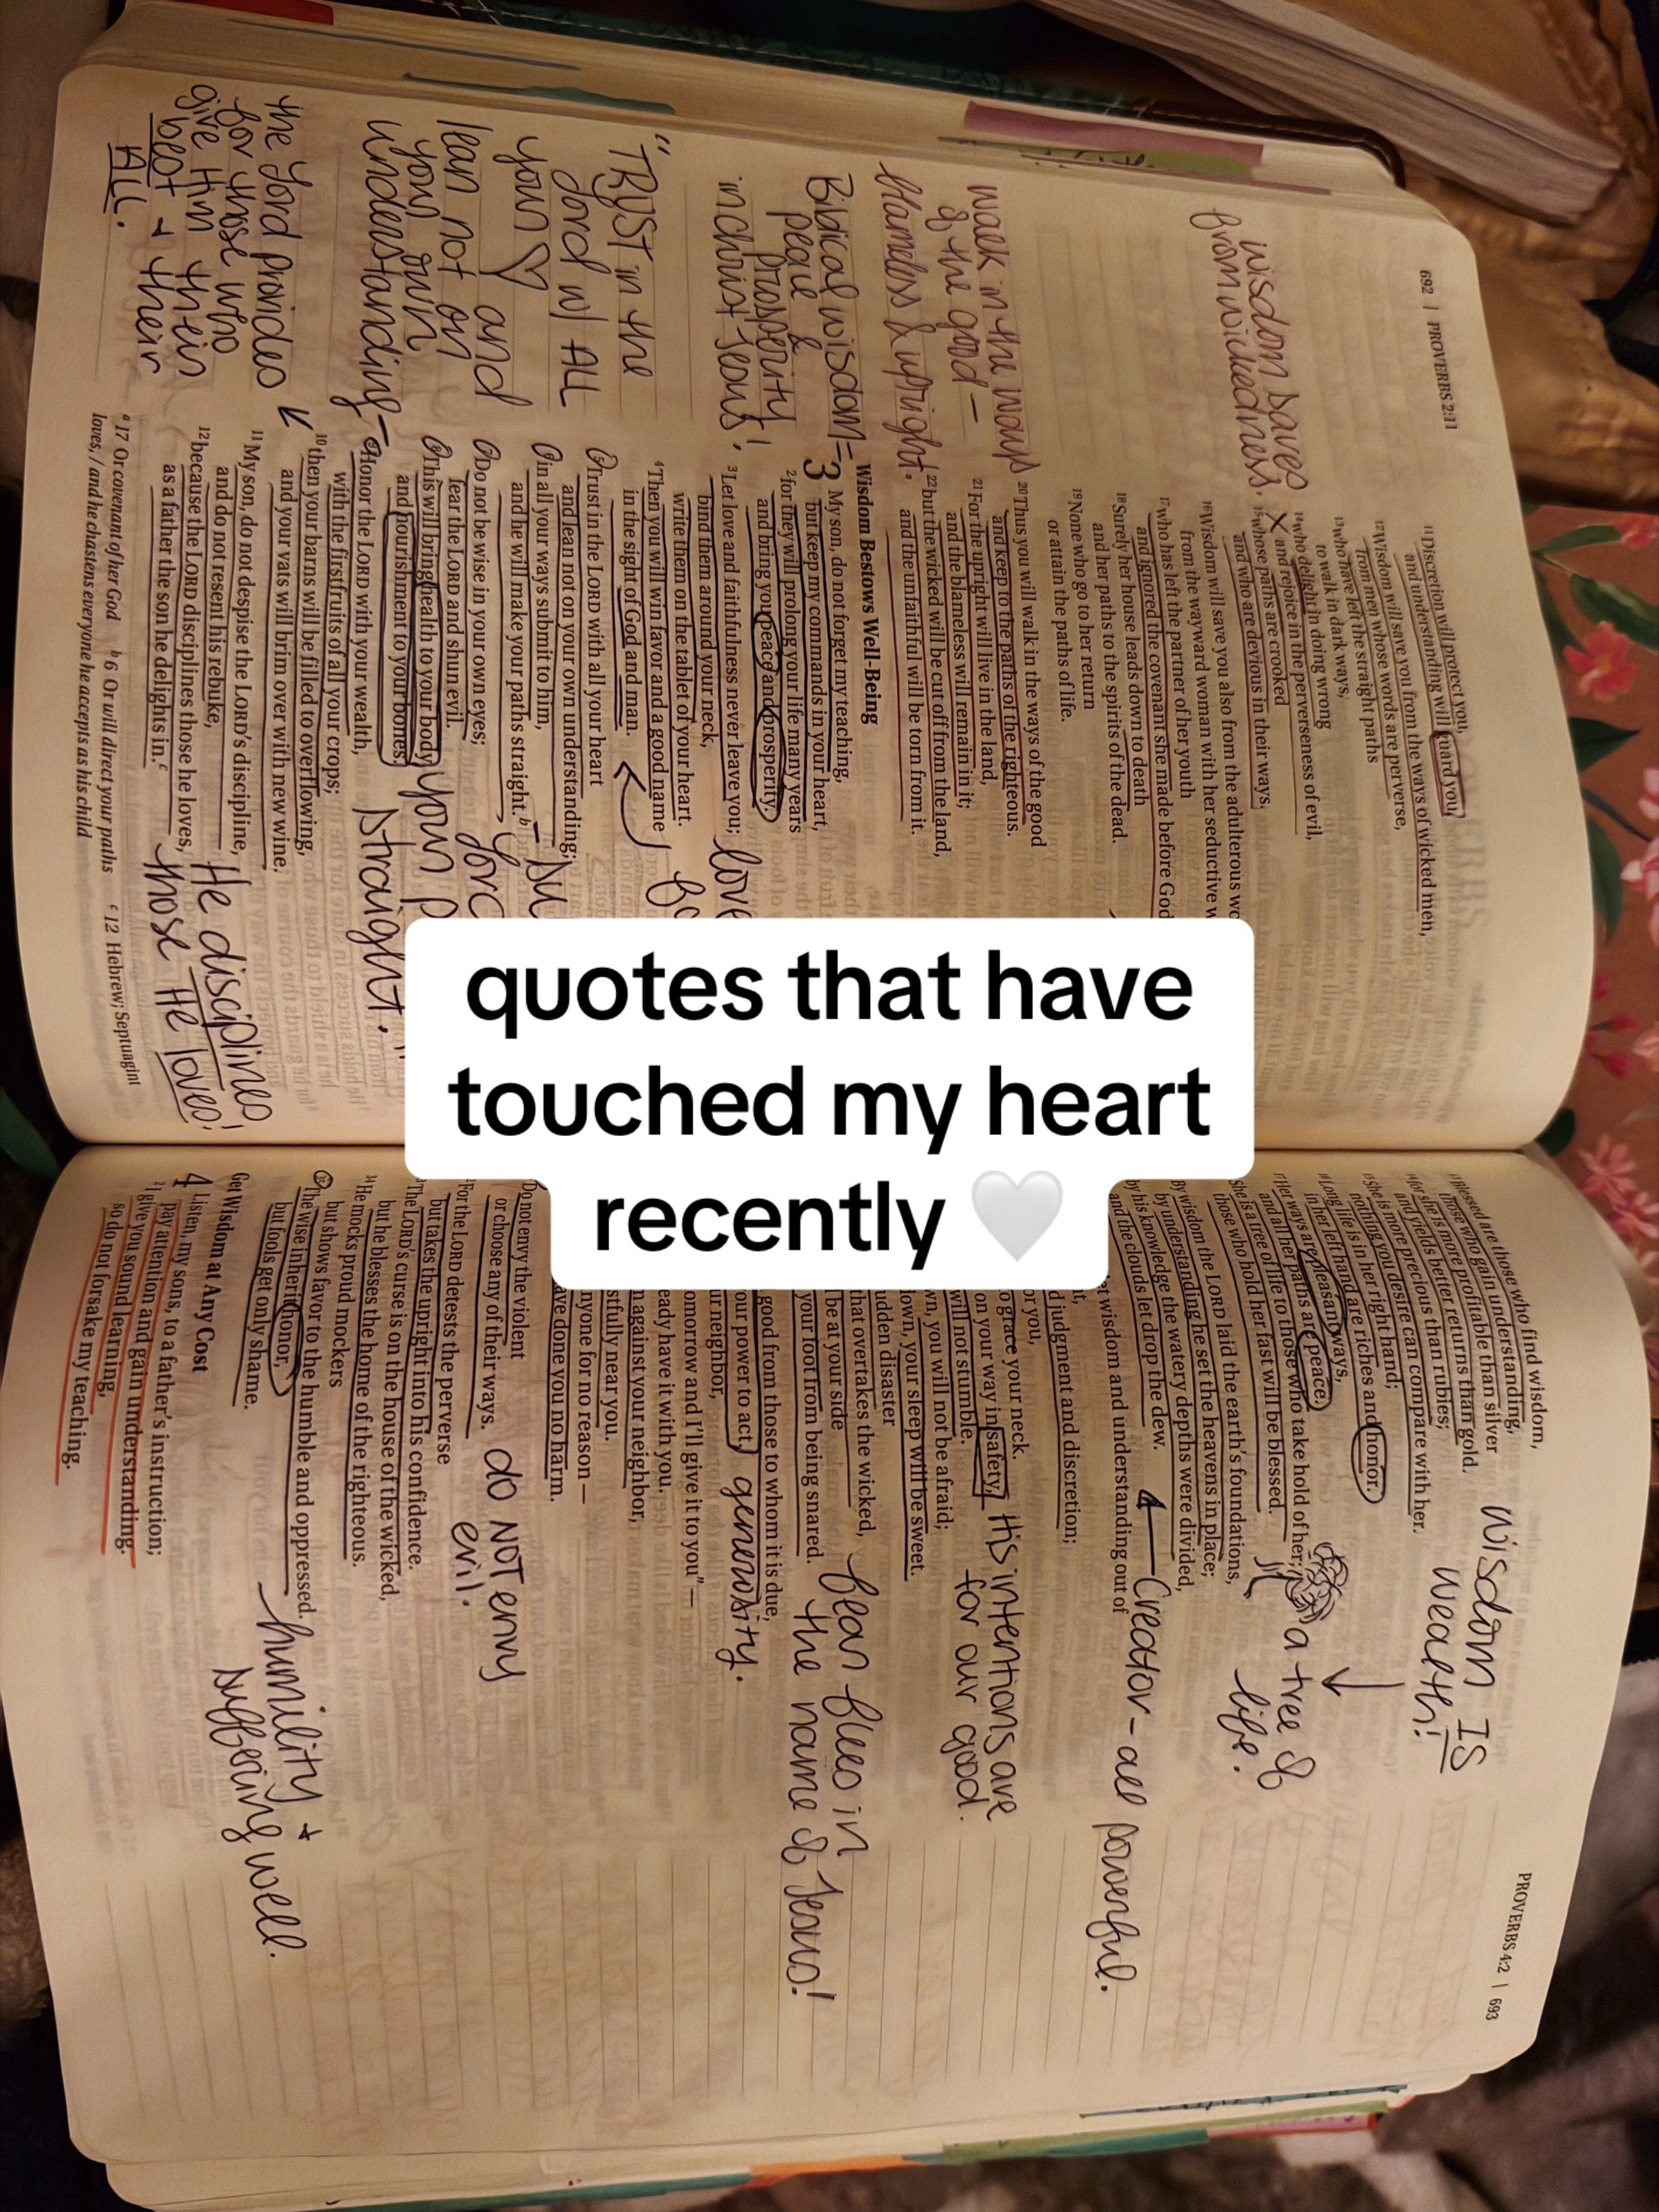 quotes that have
touched my heart
recently 🤍
692 | PROVERBS 2:11
¹¹Discretion will protect you,
and understanding will guard you.
¹²Wisdom will save you from the ways of wicked men,
from men whose words are perverse,
¹³who have left the straight paths
to walk in dark ways,
¹⁴who delight in doing wrong
and rejoice in the perverseness of evil,
¹⁵whose paths are crooked
and who are devious in their ways.
¹⁶Wisdom will save you also from the adulterous wo
from the wayward woman with her seductive w
¹⁷who has left the partner of her youth
and ignored the covenant she made before God
¹⁸Surely her house leads down to death
and her paths to the spirits of the dead.
¹⁹None who go to her return
or attain the paths of life.
²⁰Thus you will walk in the ways of the good
and keep to the paths of the righteous.
²¹For the upright will live in the land,
and the blameless will remain in it;
²²but the wicked will be cut off from the land,
and the unfaithful will be torn from it.
Wisdom Bestows Well-Being
3 My son, do not forget my teaching,
but keep my commands in your heart,
²for they will prolong your life many years
and bring you peace and prosperity.
³Let love and faithfulness never leave you;
bind them around your neck,
write them on the tablet of your heart.
⁴Then you will win favor and a good name
in the sight of God and man.
Trust in the LORD with all your heart
and lean not on your own understanding;
in all your ways submit to him,
and he will make your paths straight.ᵇ
Do not be wise in your own eyes;
fear the LORD and shun evil.
This will bring health to your body
and nourishment to your bones.
Honor the LORD with your wealth,
with the firstfruits of all your crops;
¹⁰then your barns will be filled to overflowing,
and your vats will brim over with new wine.
¹¹My son, do not despise the LORD's discipline,
and do not resent his rebuke,
¹²because the LORD disciplines those he loves,
as a father the son he delights in.ᶜ
ᵃ 17 Or covenant of her God ᵇ 6 Or will direct your paths ᶜ 12 Hebrew; Septuagint
loves, / and he chastens everyone he accepts as his child
wisdom saves
from wickedness.
walk in the ways
of the good -
blameless & upright.
Biblical wisdom =
peace &
prosperity
in christ Jesus!
"TRUST in the
Lord w/ ALL
your ♡ and
lean not on
your own
understanding-
the Lord provides
for those who
give Him their
best & their
ALL.
love
your p
straight."
He disciplines
those He loves!
PROVERBS 4:2 | 693
Blessed are those who find wisdom,
those who gain understanding,
for she is more profitable than silver
and yields better returns than gold.
She is more precious than rubies;
nothing you desire can compare with her.
Long life is in her right hand;
in her left hand are riches and honor.
Her ways are pleasant ways,
and all her paths are peace.
She is a tree of life to those who take hold of her;
those who hold her fast will be blessed.
By wisdom the LORD laid the earth's foundations,
by understanding he set the heavens in place;
by his knowledge the watery depths were divided,
and the clouds let drop the dew.
et wisdom and understanding out of
t,
d judgment and discretion;
or you,
to grace your neck.
on your way in safety,
will not stumble.
wn, you will not be afraid;
down, your sleep will be sweet.
udden disaster
that overtakes the wicked,
l be at your side
your foot from being snared.
good from those to whom it is due,
our power to act.
ur neighbor,
omorrow and I'll give it to you"—
eady have it with you.
m against your neighbor,
stfully near you.
nyone for no reason—
ave done you no harm.
Do not envy the violent
or choose any of their ways.
For the LORD detests the perverse
but takes the upright into his confidence.
The LORD's curse is on the house of the wicked,
but he blesses the home of the righteous.
He mocks proud mockers
but shows favor to the humble and oppressed.
The wise inherit honor,
but fools get only shame.
Get Wisdom at Any Cost
4 Listen, my sons, to a father's instruction;
pay attention and gain understanding.
²I give you sound learning,
so do not forsake my teaching.
Wisdom IS
wealth!
a tree of
life.
Creator - all powerful.
His intentions are
for our good.
fear flees in
the name of Jesus!
generosity.
do NOT envy
evil.
humility &
suffering well.